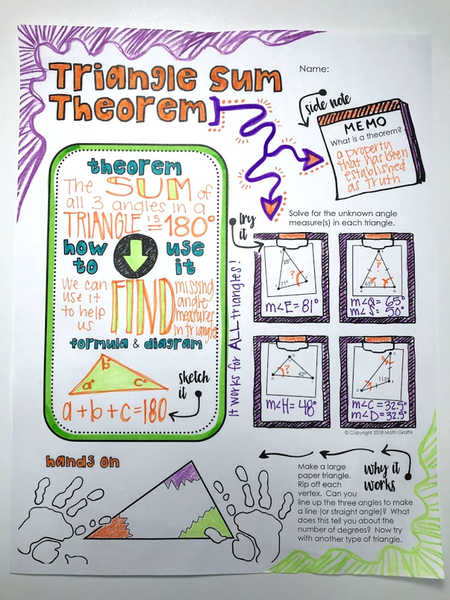 Triangle Sum
Theorem
Name:
side note
MEMO
What is a theorem?
a property
that has been
established
as truth
theorem
The SUM of
all 3 angles in a
TRIANGLE is = 180°
how to use it
We can
use it
to help
us
FIND
missing
angle
measures
in triangles
formula & diagram
a° b° c°
sketch
it
a + b + c = 180
try
it
It works for ALL triangles!
Solve for the unknown angle
measure(s) in each triangle.
m∠E = 81°
m∠Q = 65°
m∠S = 50°
m∠H = 48°
m∠C = 32.5°
m∠D = 32.5°
© Copyright 2018 Math Giraffe
hands on
why it
works
Make a large
paper triangle.
Rip off each
vertex. Can you
line up the three angles to make
a line (or straight angle)? What
does this tell you about the
number of degrees? Now try
with another type of triangle.